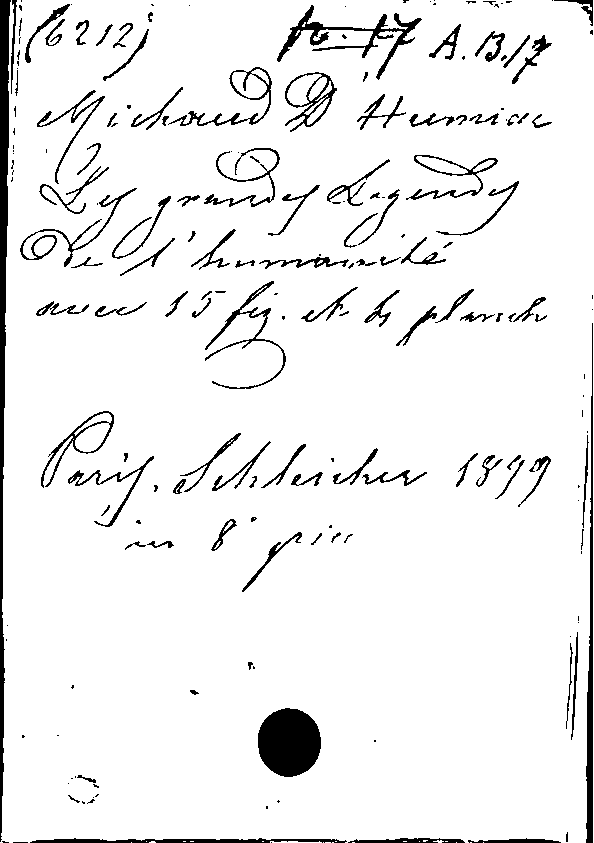 (6212) A.13.17
Michaud D'Humiac
Les grandes Légendes
de l'humanité
avec 15 fig. et 6 planch
Paris. Schleicher 1899
in 8°